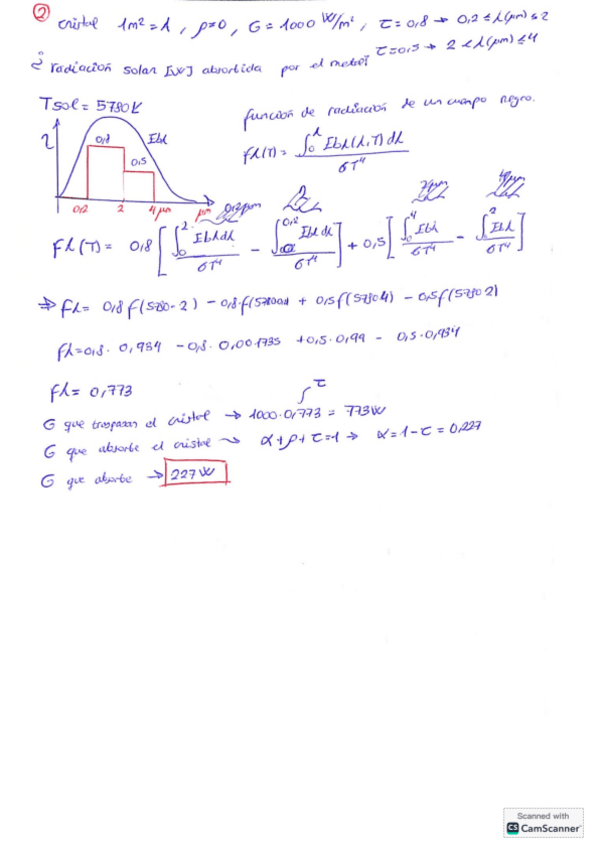 ② cristal 1m² = A, ρ=0, G = 1000 W/m², τ = 0,8 → 0,2 ≤ λ(μm) ≤ 2
τ=0,5 → 2 < λ(μm) ≤ 4
¿ radiación solar [W] absorbida por el
Tsol = 5780 K
función de radiación de un cuerpo negro.
τ
0,8
Ebλ
0,5
fλ(T) = ∫₀^λ Ebλ(λ,T) dλ / σT⁴
0,2 2 4 μm μm
fλ(T) = 0,8 [ ∫₀² Ebλdλ / σT⁴ - ∫₀^0,2 Ebλ dλ / σT⁴ ] + 0,5 [ ∫₀⁴ Ebλ / σT⁴ - ∫₀² Ebλ / σT⁴ ]
⇒ fλ = 0,8 f(5780·2) - 0,8·f(5780·0,2) + 0,5 f(5780·4) - 0,5 f(5780·2)
fλ=0,8 · 0,934 - 0,8 · 0,001735 + 0,5 · 0,99 - 0,5 · 0,934
fλ = 0,773
τ
G que traspasan el cristal → 1000·0,773 = 773W
G que absorbe el cristal → α+ρ+τ=1 → α=1-τ = 0,227
G que absorbe → 227 W
Scanned with
CS CamScanner